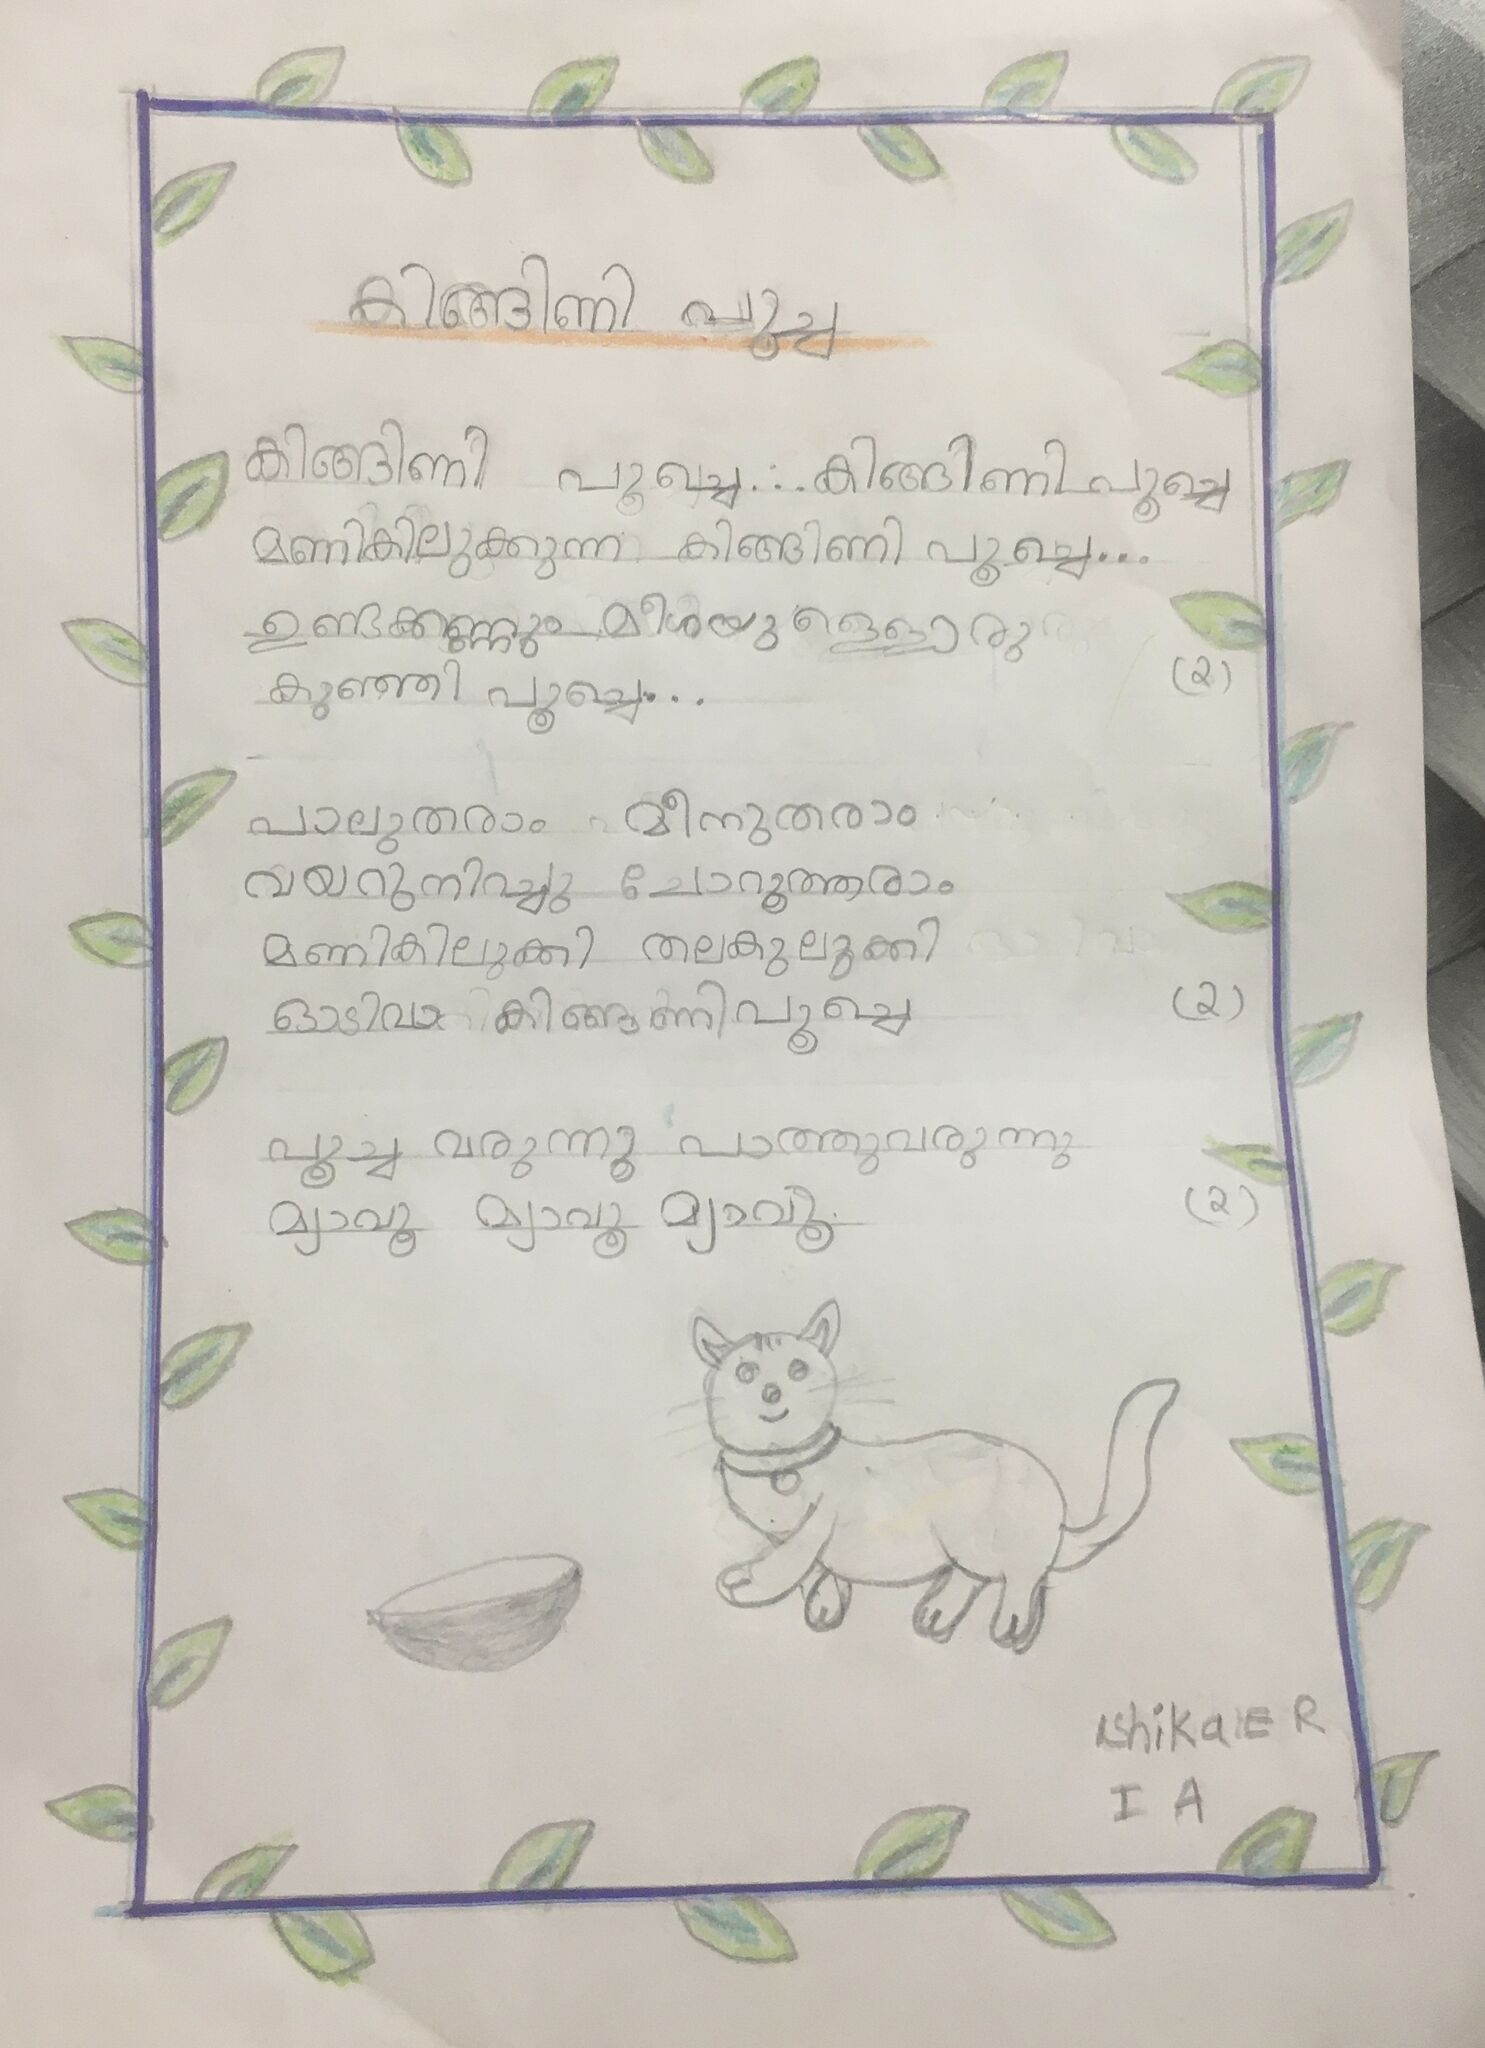 കിങ്ങിണി പൂച്ച
കിങ്ങിണി പൂച്ചെ... കിങ്ങിണി പൂച്ചെ
മണികിലുക്കുന്ന കിങ്ങിണി പൂച്ചെ...
ഉണ്ടക്കണ്ണും മീശയുള്ളൊരു
കുഞ്ഞി പൂച്ചെ... (2)
പാലുതരാം മീനുതരാം
വയറുനിറച്ചു ചോറൂത്തരാം
മണികിലുക്കി തലകുലുക്കി
ഓടിവാ കിങ്ങിണിപൂച്ചെ (2)
പൂച്ച വരുന്നൂ പാത്തുവരുന്നു
മ്യാവൂ മ്യാവൂ മ്യാവൂ. (2)
Ishika E R
I A